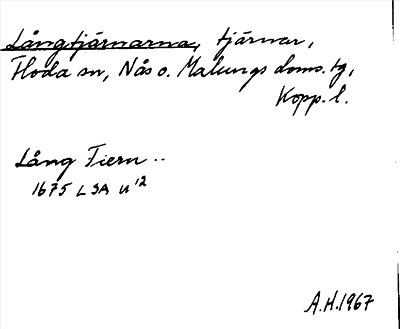 Långtjärnarna, tjärnar,
Floda sn, Nås o. Malungs doms. tg,
Kopp. l.
Lång Tiern ..
1675 LSA U 12
A.H. 1967